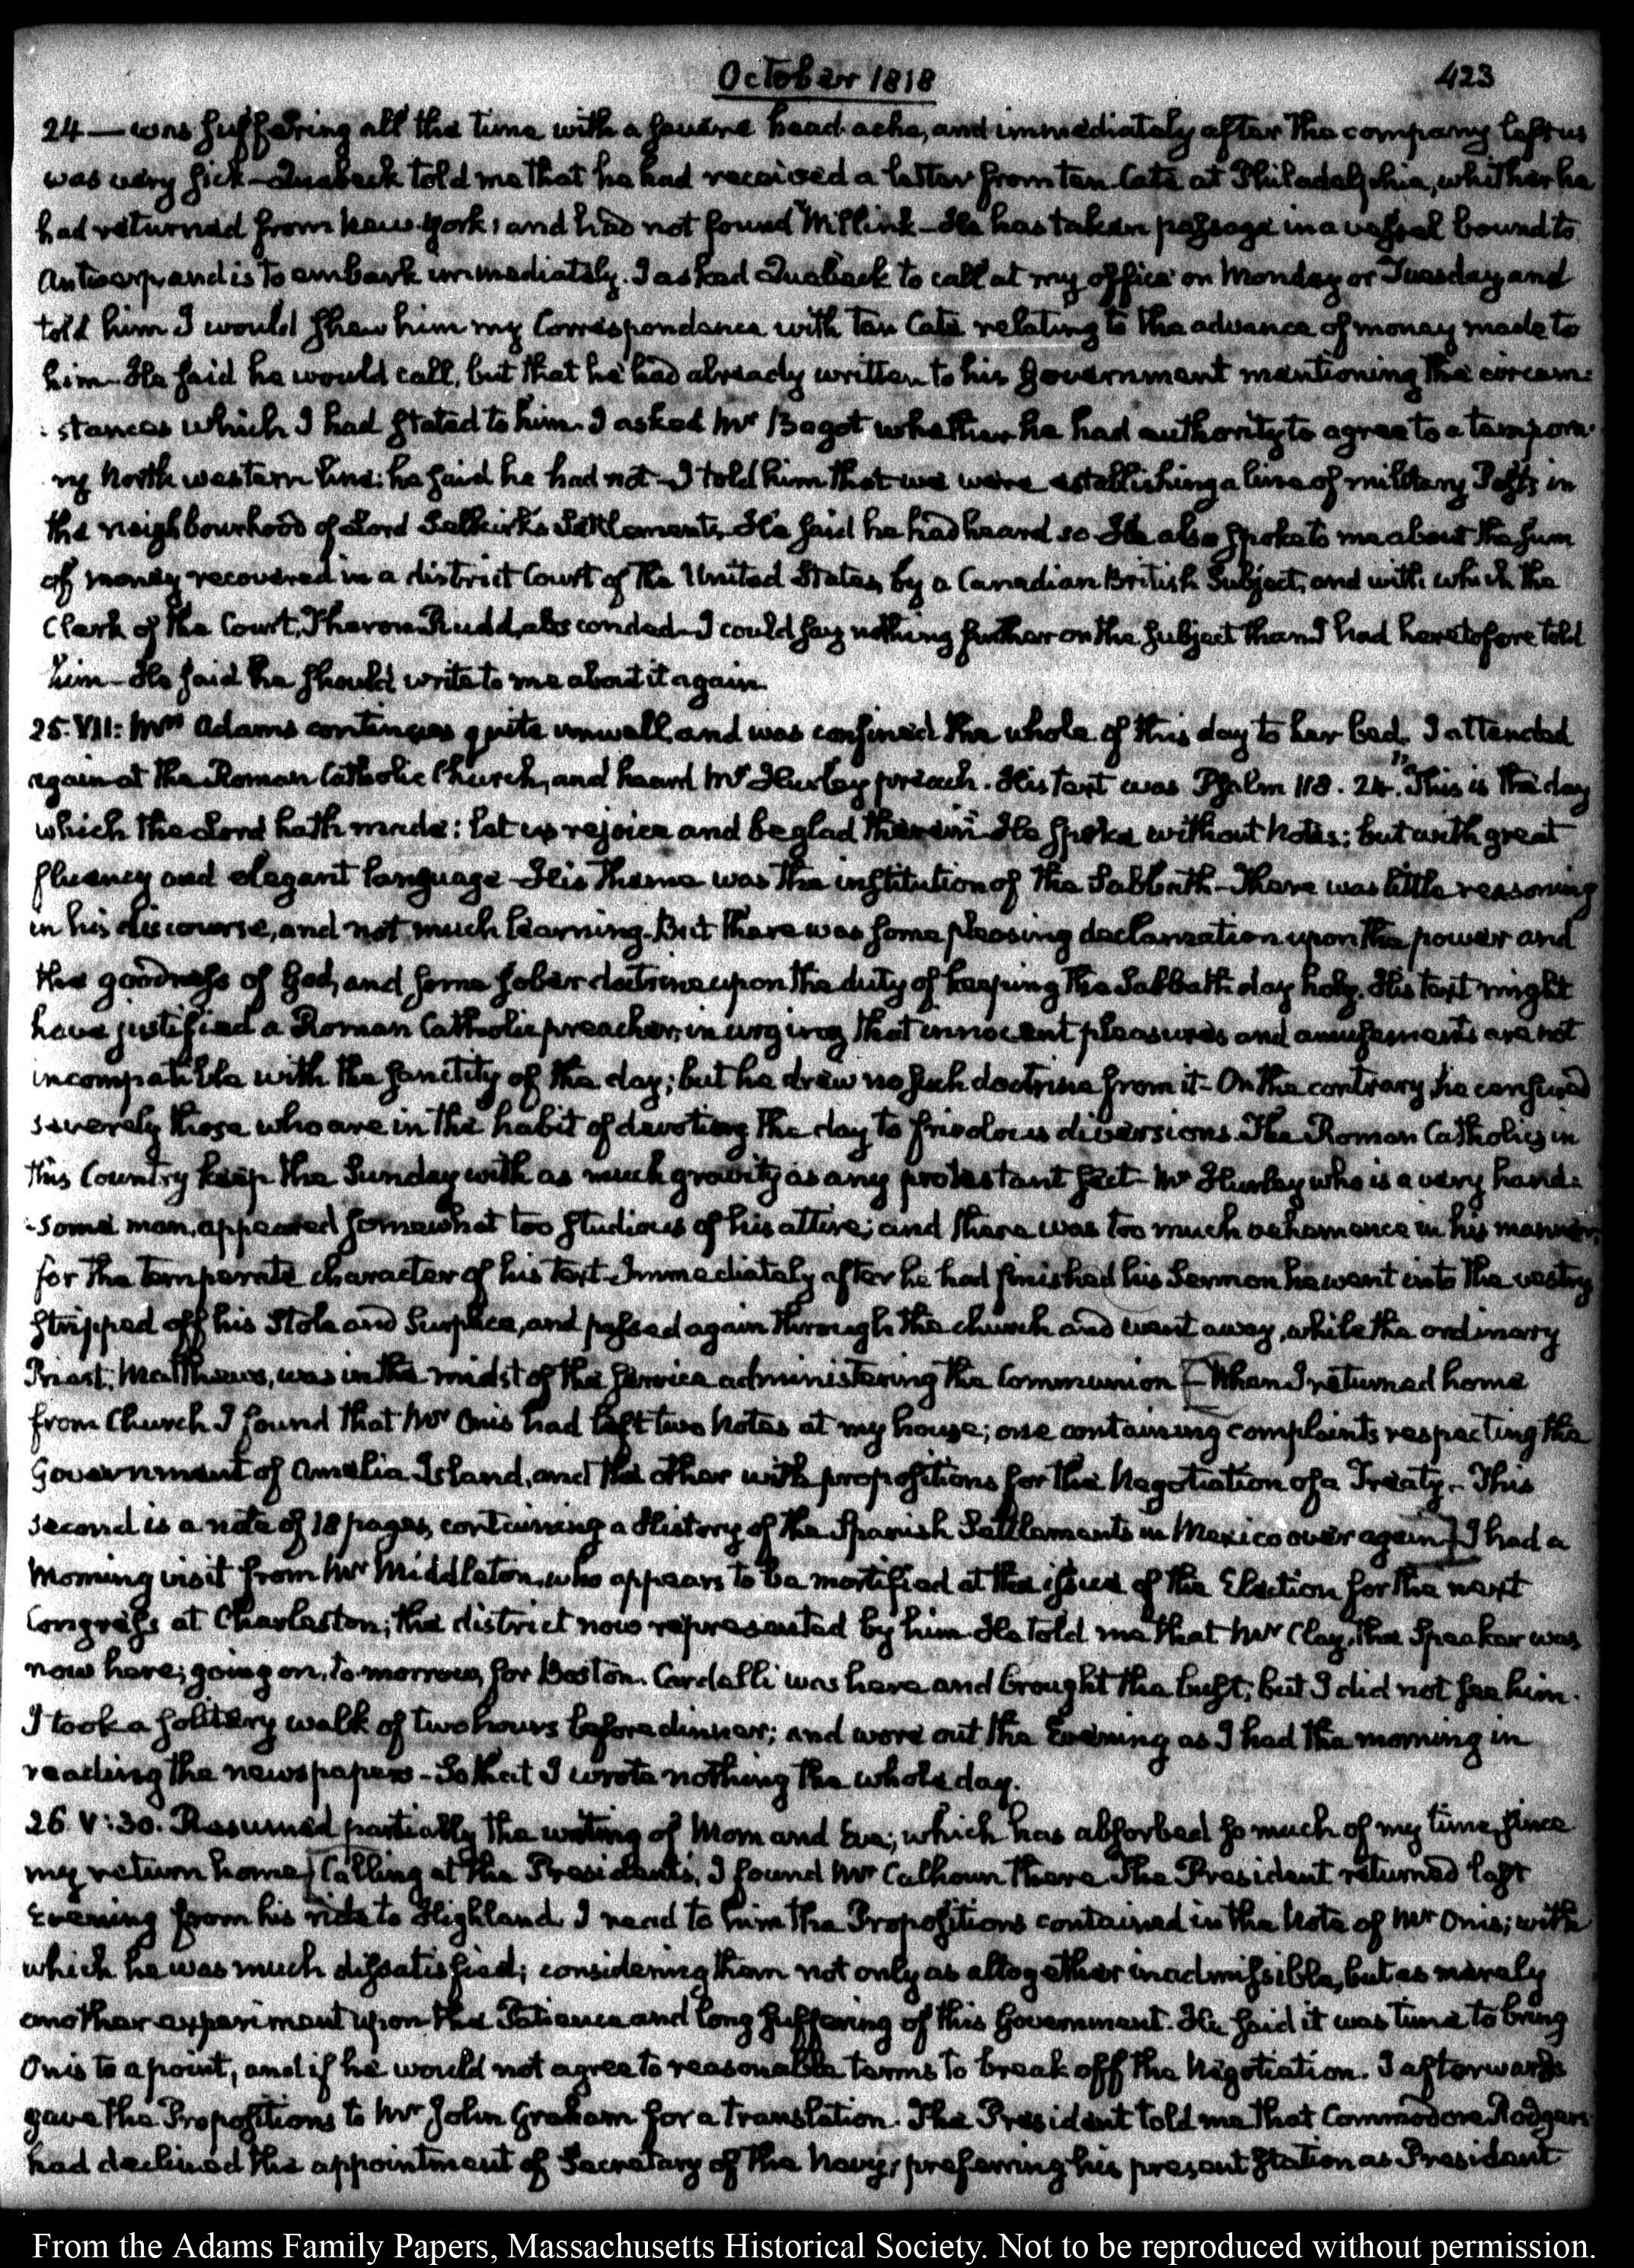 October 1818
423
24 — was suffering all the time with a severe head ache, and immediately after the company left us
was very sick — Quabeck told me that he had received a letter from ten Cate at Philadelphia, whither he
had returned from New-York, and had not found — He has taken passage in a vessel bound to
Antwerp and is to embark immediately. I asked Quabeck to call at my office on Monday or Tuesday and
told him I would shew him my Correspondence with Ten Cate relating to the advance of money made to
him — He said he would call, but that he had already written to his Government mentioning the circum:
:stances which I had stated to him. I asked Mr Bagot whether he had authority to agree to a tempora-
ry North western line: he said he had not — I told him that we were establishing a line of military Posts in
the neighbourhood of Lord Selkirk's Settlements. He said he had heard so — He also spoke to me about the sum
of money recovered in a district Court of the United States, by a Canadian British Subject, and with which the
Clerk of the Court, Theron Rudd, absconded — I could say nothing further on the subject than I had heretofore told
him — He said he should write to me about it again.
25. VII: Mrs Adams continues quite unwell, and was confined the whole of this day to her bed. I attended
again at the Roman Catholic Church, and heard Mr Hurley preach. His text was Psalm 118. 24. "This is the day
which the Lord hath made: let us rejoice and be glad therein" He spoke without Notes; but with great
fluency and elegant language — His Theme was the institution of the Sabbath — There was little reasoning
in his discourse, and not much learning. But there was some pleasing declamation upon the power and
the goodness of God, and some sober doctrine upon the duty of keeping the Sabbath day holy. His text might
have justified a Roman Catholic preacher, in urging that innocent pleasures and amusements are not
incompatible with the sanctity of the day; but he drew no such doctrine from it — On the contrary, he censured
severely those who are in the habit of devoting the day to frivolous diversions. The Roman Catholics in
this Country keep the Sunday with as much gravity as any protestant sect — Mr Hurley who is a very hand:
:some man, appeared somewhat too studious of his attire; and there was too much vehemence in his manner,
for the temperate character of his text — Immediately after he had finished his Sermon he went into the vestry
stripped off his Stole and Surplice, and passed again through the church and went away, while the ordinary
Priest, Matthews, was in the midst of the service administering the Communion [— When I returned home
from Church I found that Mr Onis had left two Notes at my house; one containing complaints respecting the
Government of Amelia Island, and the other with propositions for the Negotiation of a Treaty. — This
second is a note of 18 pages, containing a History of the Spanish Settlements in Mexico over again] I had a
morning visit from Mr Middleton, who appears to be mortified at the issue of the Election for the next
Congress at Charleston; the district now represented by him — He told me that Mr Clay, the Speaker was
now here; going on, to-morrow, for Boston. Cardelli was here and brought the bust, but I did not see him.
I took a solitary walk of two hours before dinner; and wore out the Evening as I had the morning in
reading the newspapers — So that I wrote nothing the whole day.
26 V:30. Resumed partially the writing of Morn and Eve; which has absorbed so much of my time since
my return home [Calling at the President's, I found Mr Calhoun there. The President returned last
Evening from his ride to Highland. I read to him the Propositions contained in the Note of Mr Onis; with
which he was much dissatisfied; considering them not only as altogether inadmissible, but as merely
another experiment upon the Patience and long suffering of this Government. He said it was time to bring
Onis to a point, and if he would not agree to reasonable terms to break off the Negotiation. I afterwards
gave the Propositions to Mr John Graham for a translation. The President told me that Commodore Rodgers
had declined the appointment of Secretary of the Navy, preferring his present station as President
From the Adams Family Papers, Massachusetts Historical Society. Not to be reproduced without permission.